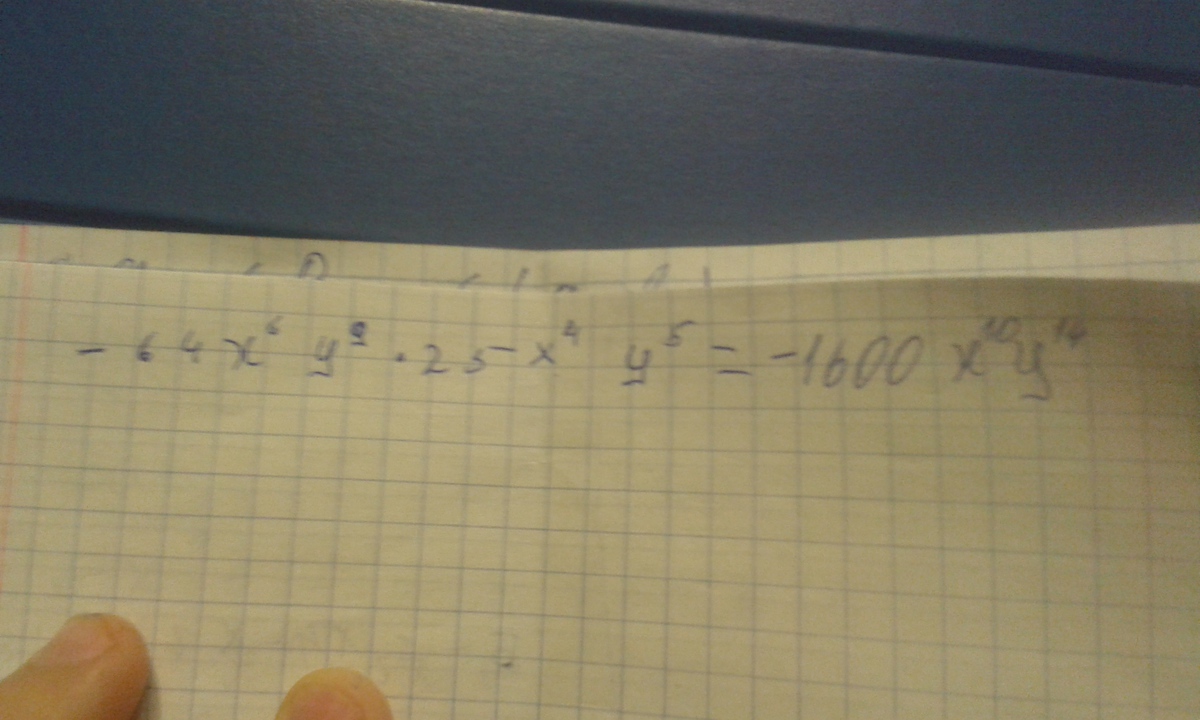 - 64x⁶ y⁹ · 25 x⁴ y⁵ = -1600 x¹⁰y¹⁴